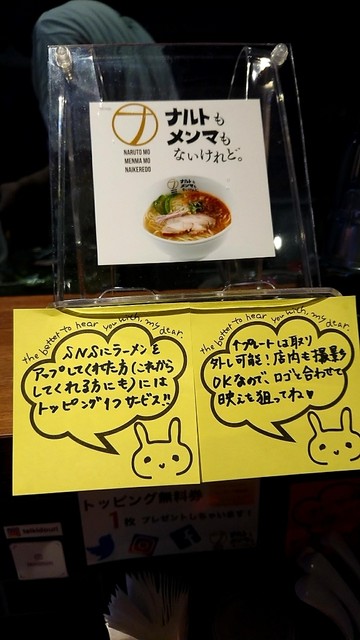 ナルトも
メンマも
ないけれど。
NARUTO MO
MENMA MO
NAIKEREDO
the better to hear you with, my dear.
SNSにラーメンを
アップしてくれた方(これから
してくれる方にも)には
トッピング1つサービス!!
the better to hear you with, my dear.
プレートは取り
外し可能!店内も撮影
OKなので、ロゴと合わせて
映えを狙ってね♥
トッピング無料券
1枚 プレゼントしちゃいます!